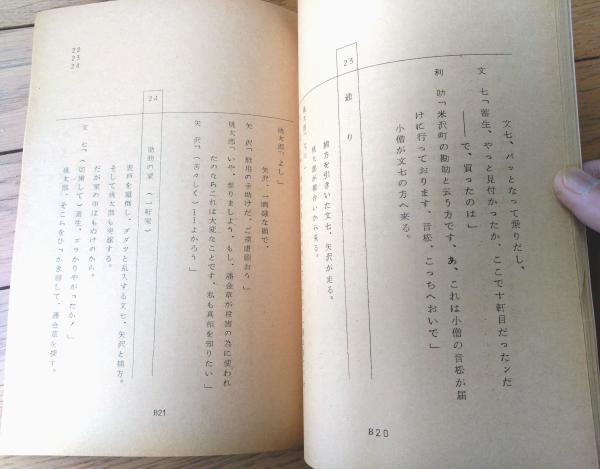 文七、パッとなって乗りだし、
文　七「畜生、やっと見付かったか、ここで十軒目だったンだ
――で、買ったのは」
利　助「米沢町の勘助と云う方です、あ、これは小僧の音松が届
けに行っております、音松、こっちへおいで」
小僧が文七の方へ来る。
23　通　り
捕方を引きいた文七、矢沢が走る。
桃太郎が路合いから来る。
桃太郎「
B20
22
23
24
桃太郎「よし」
矢沢、一瞬嫌な顔で、
矢　沢「無用の手助けだ、ご遠慮願おう」
桃太郎「いや、参りましよう、もし、藩金草が殺害の為に使われ
たのならこれは大変なことです、私も真相を知りたい」
矢　沢「（苦々しく）――よかろう」
24　勘助の家　（一軒家）
表戸を蹴倒し、ダダッと乱入する文七、矢沢と捕方。
そして桃太郎も突進する。
だが家の中はもぬけのから。
文　七「（切歯して）畜生、ズラかりやがったか！」
桃太郎、そこらをひっかき廻して、藩金草を探す。
B21